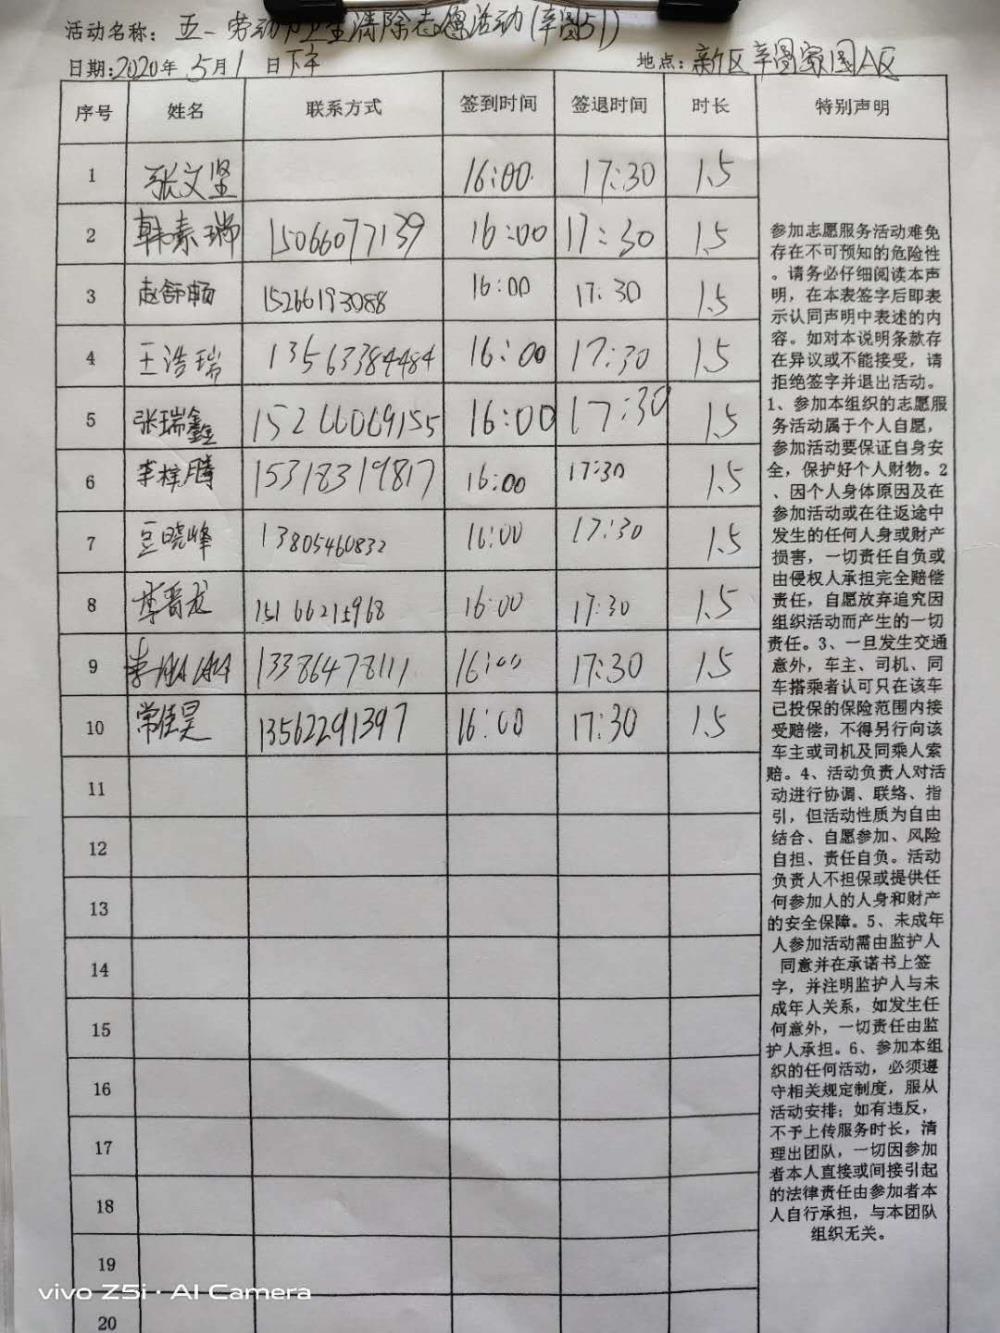 活动名称：五一劳动节卫生清除志愿活动(辛图51)
日期:2020年 5月1 日下午 地点:新区辛图家园A区
序号 姓名 联系方式 签到时间 签退时间 时长 特别声明
1 张文坚 16:00 17:30 1.5
2 韩素瑞 15066077139 16:00 17:30 1.5
3 赵舒畅 15266193088 16:00 17:30 1.5
4 王浩瑞 13563384484 16:00 17:30 1.5
5 张瑞鑫 15266069155 16:00 17:30 1.5
6 李梓腾 15318319817 16:00 17:30 1.5
7 豆晓峰 13805460832 16:00 17:30 1.5
8 15166215968 16:00 17:30 1.5
9 李 13386478111 16:00 17:30 1.5
10 常佳昊 13562291397 16:00 17:30 1.5
11
12
13
14
15
16
17
18
19
20
参加志愿服务活动难免
存在不可预知的危险性
。请务必仔细阅读本声
明，在本表签字后即表
示认同声明中表述的内
容。如对本说明条款存
在异议或不能接受，请
拒绝签字并退出活动。
1、参加本组织的志愿服
务活动属于个人自愿，
参加活动要保证自身安
全，保护好个人财物。2
、因个人身体原因及在
参加活动或在往返途中
发生的任何人身或财产
损害，一切责任自负或
由侵权人承担完全赔偿
责任，自愿放弃追究因
组织活动而产生的一切
责任。3、一旦发生交通
意外，车主、司机、同
车搭乘者认可只在该车
已投保的保险范围内接
受赔偿，不得另行向该
车主或司机及同乘人索
赔。4、活动负责人对活
动进行协调、联络、指
引，但活动性质为自由
结合、自愿参加、风险
自担、责任自负。活动
负责人不担保或提供任
何参加人的人身和财产
的安全保障。5、未成年
人参加活动需由监护人
同意并在承诺书上签
字，并注明监护人与未
成年人关系，如发生任
何意外，一切责任由监
护人承担。6、参加本组
织的任何活动，必须遵
守相关规定制度，服从
活动安排；如有违反，
不予上传服务时长，清
理出团队，一切因参加
者本人直接或间接引起
的法律责任由参加者本
人自行承担，与本团队
组织无关。
vivo Z5i · AI Camera